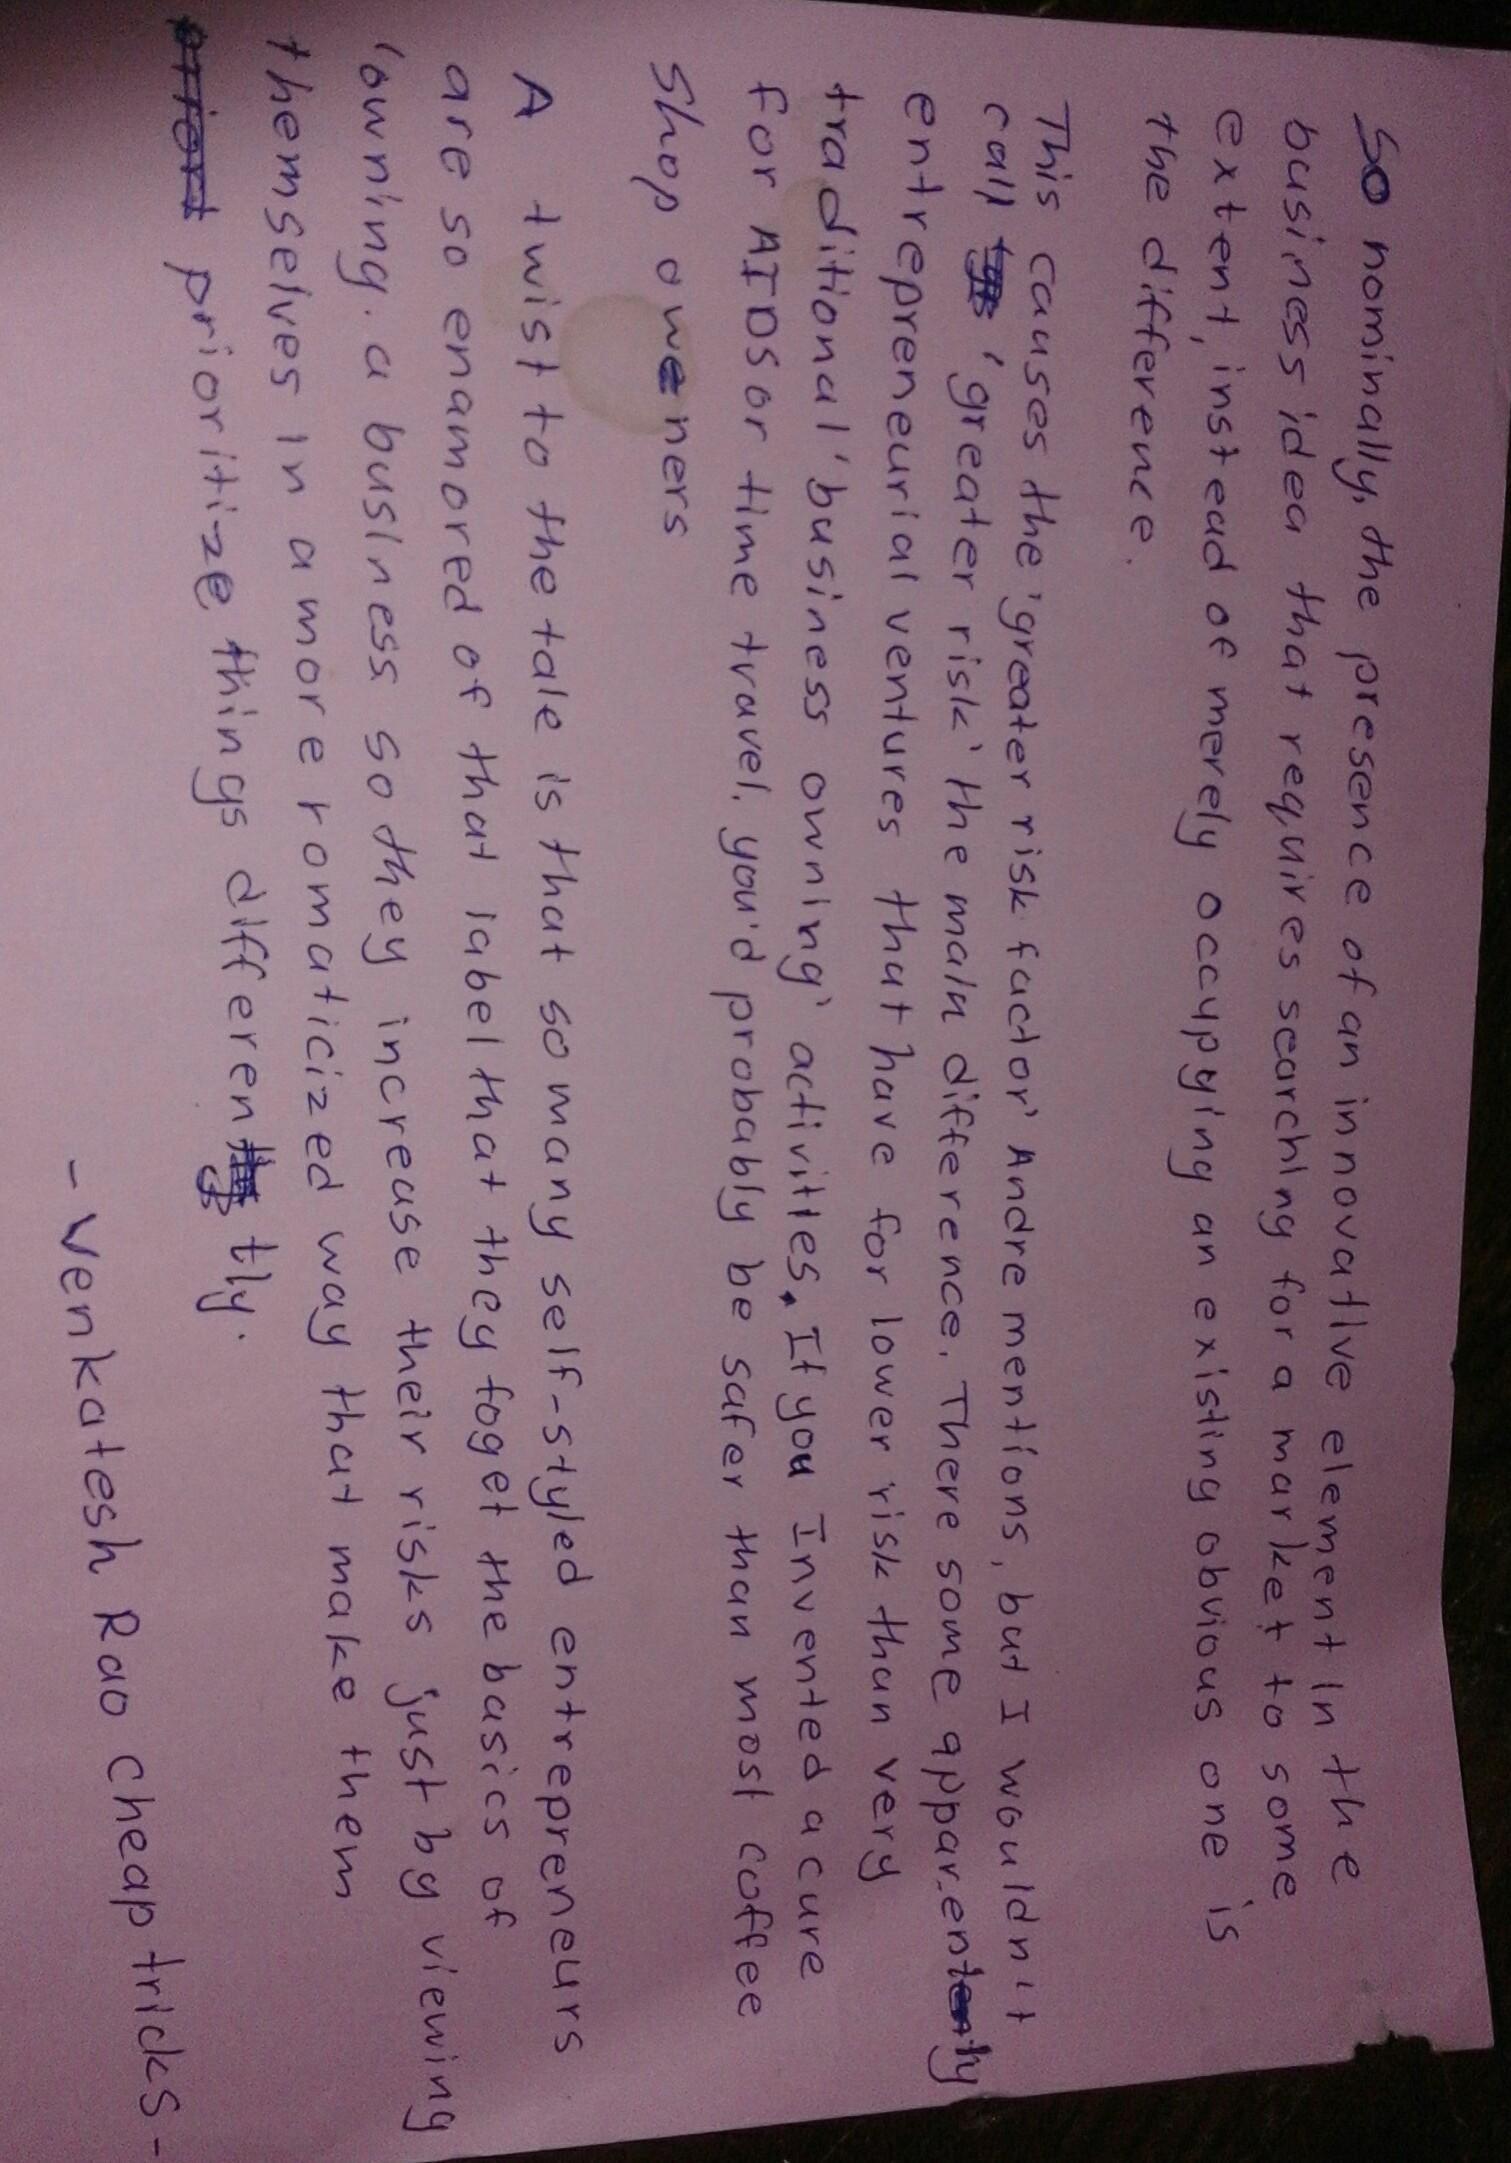 So nominally, the presence of an innovative element in the
business idea that requires searching for a market to some
extent, instead of merely occupying an existing obvious one is
the difference.
This causes the 'greater risk factor' Andre mentions, but I wouldn't
call 'greater risk' the main difference. There some apparently
entrepreneurial ventures that have for lower risk than very
traditional 'business owning' activities. If you Invented a cure
for AIDS or time travel, you'd probably be safer than most coffee
shop oweners
A twist to the tale is that so many self-styled entrepreneurs
are so enamored of that label that they foget the basics of
'owning. a business so they increase their risks just by viewing
themselves in a more romaticized way that make them
priort prioritize things differently.
- Venkatesh Rao cheap tricks -